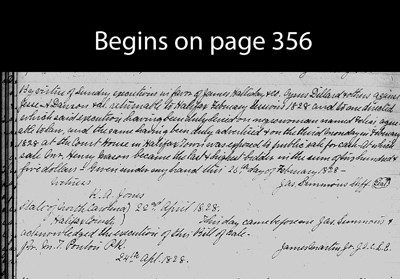 Begins on page 356
By virtue of Sundry executions in favor of James Halliday & co. Cyrus Dillard & others against
Jesse A Dawson & al. returnable to Halifax February Sessions 1828 and to me directed
which said execution having been duly levied on negro woman named
able to law, and the same having been duly advertised & on the third Monday in February
1828 at the Court House in Halifax Town was exposed to public sale for cash. At which
sale Mr. Henry Mason became the last & highest bidder in the sum of two hundred &
five dollars. Given under my hand this 26th day of February 1828 -
Jas. Simmons Shff. (Seal)
W. A. Jones
State of North Carolina) 22nd April 1828.
Halifax County) This day came before me Jas. Simmons &
acknowledged the execution of this Bill of Sale -
24th Apl. 1828.